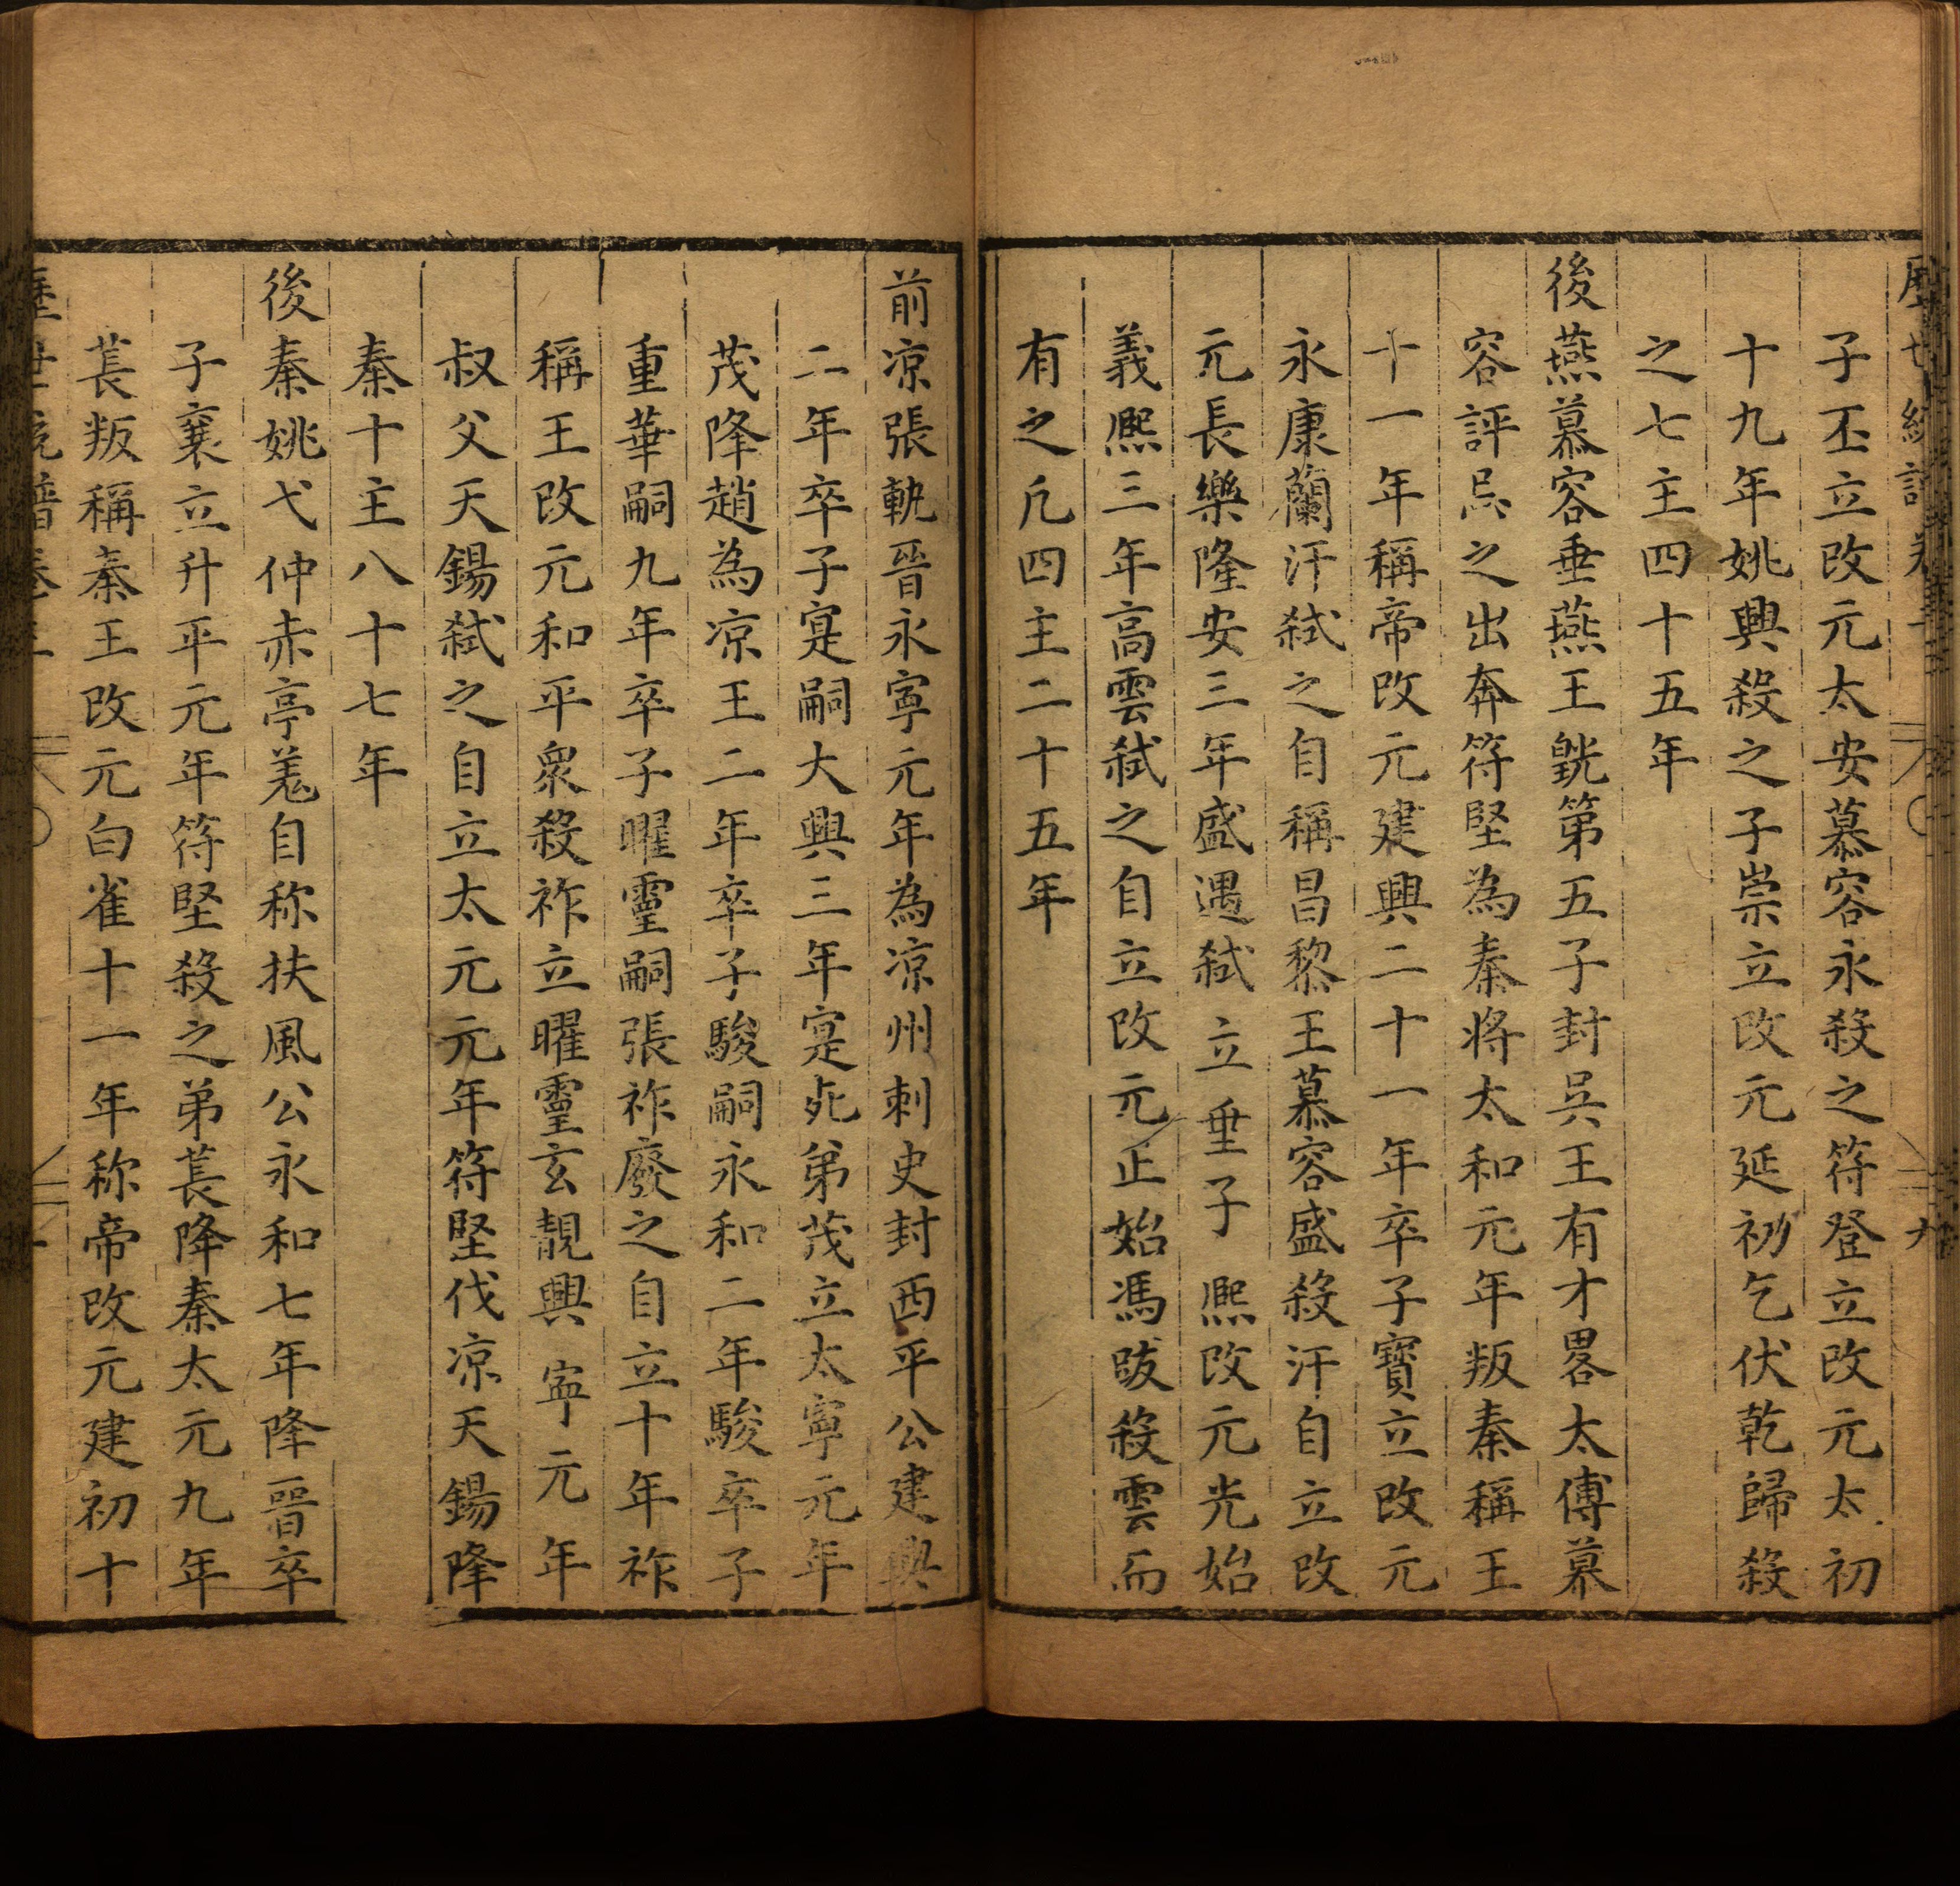 子丕立改元太安慕容永殺之符登立改元太初
十九年姚興殺之子崇立改元延初乞伏乾歸殺
之七主四十五年
後燕慕容垂燕王皝第五子封吳王有才畧太傅慕
容評忌之出奔符堅為秦将太和元年叛秦稱王
十一年稱帝改元建興二十一年卒子寶立改元
永康蘭汗弑之自稱昌黎王慕容盛殺汗自立改
元長樂隆安三年盛遇弑立垂子熈改元光始
義熈三年高雲弑之自立改元正始馮跋殺雲而
有之凡四主二十五年
前凉張軌晉永寧元年為凉州刺史封西平公建興
二年卒子寔嗣大興三年寔死弟茂立太寧元年
茂降趙為凉王二年卒子駿嗣永和二年駿卒子
重華嗣九年卒子曜靈嗣張祚廢之自立十年祚
稱王改元和平衆殺祚立曜靈玄靚興寧元年
叔父天錫弑之自立太元元年符堅伐凉天錫降
秦十主八十七年
後秦姚弋仲赤亭羗自称扶風公永和七年降晉卒
子襄立升平元年符堅殺之弟萇降秦太元九年
萇叛稱秦王改元白雀十一年称帝改元建初十